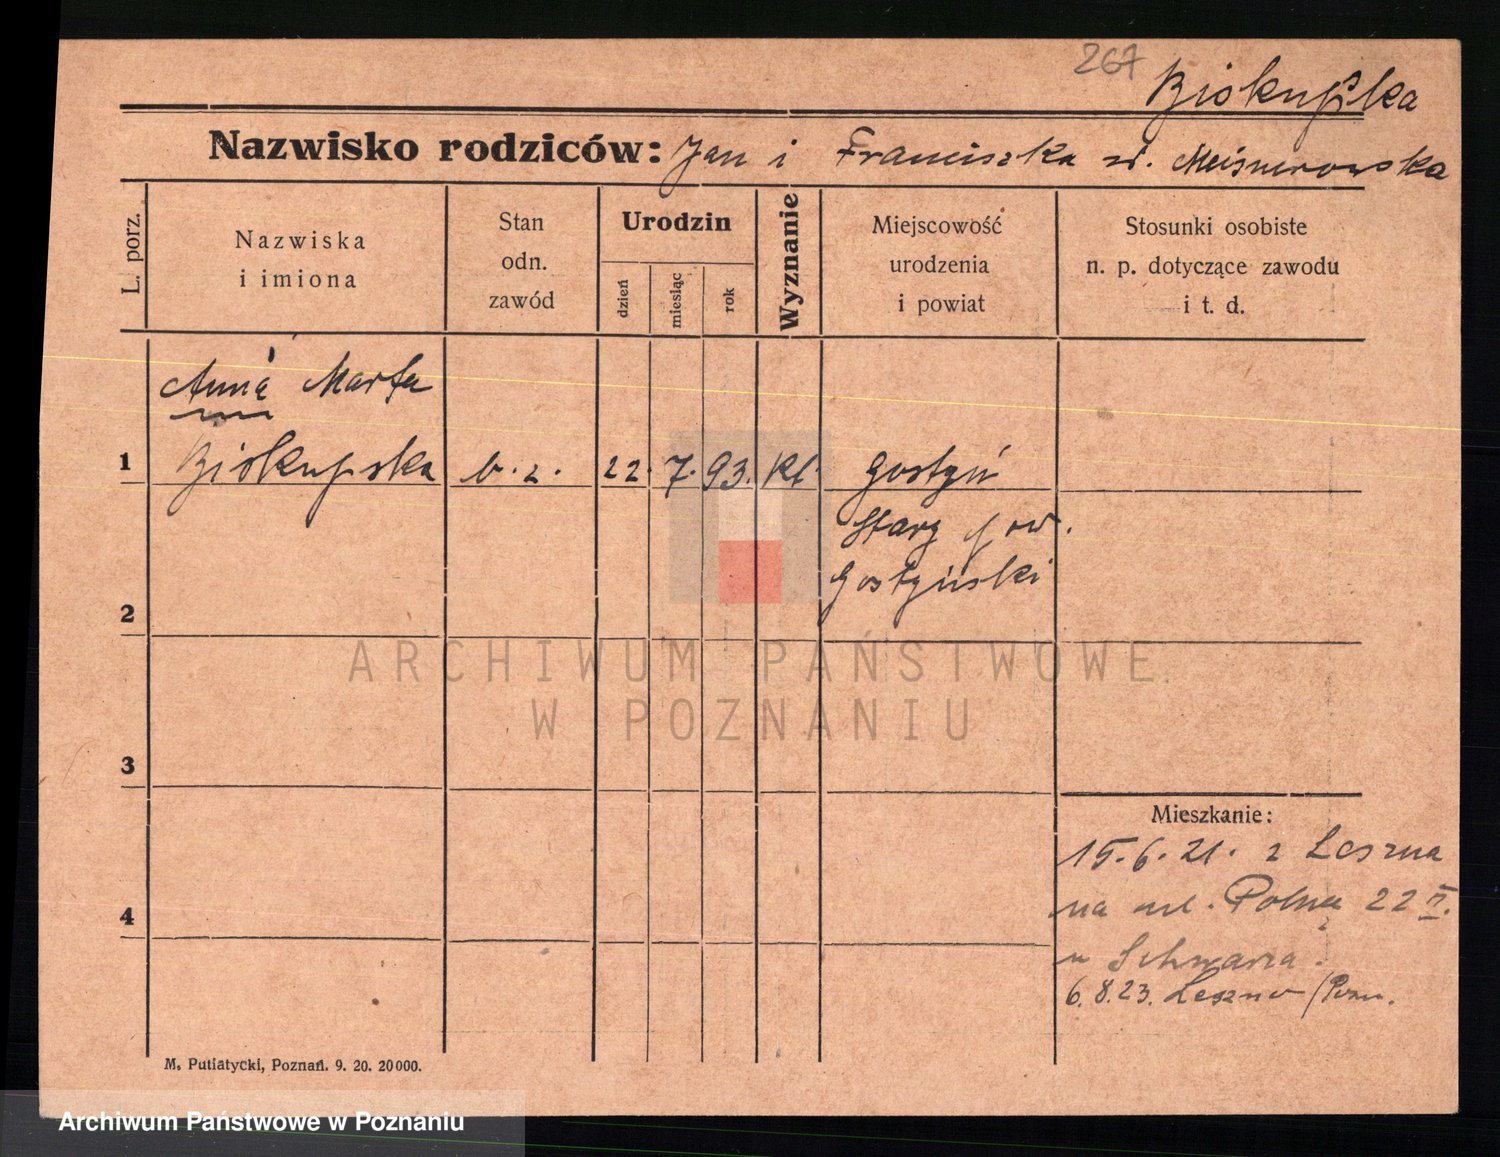 267
Biskupska
Nazwisko rodziców: Jan i Franciszka zd. Meisnerowska
L. porz.
Nazwiska
i imiona
Stan
odn.
zawód
Urodzin
dzień
miesiąc
rok
Wyznanie
Miejscowość
urodzenia
i powiat
Stosunki osobiste
n. p. dotyczące zawodu
i t. d.
Anna Marta
1 Biskupska b. z. 22. 7. 93. kt. Gostyń
Stary pow.
Gostyński
2
3
4
Mieszkanie:
15. 6. 21. z Leszna
na ul. Polna 22 II.
u Schwarza.
6. 8. 23. Leszno / Pozn.
M. Putiatycki, Poznań. 9. 20. 20000.
ARCHIWUM PAŃSTWOWE
W POZNANIU
Archiwum Państwowe w Poznaniu